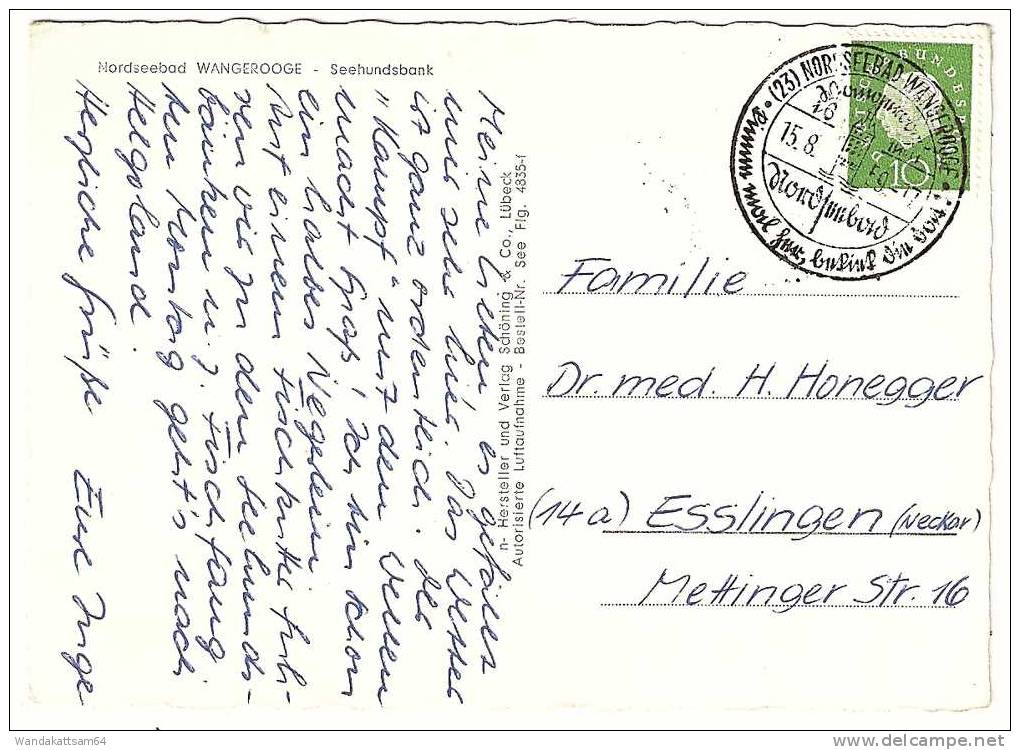 Nordseebad WANGEROOGE - Seehundsbank
Meine Lieben! Es gefällt
mir sehr hier. Das Wetter
ist ganz ordentlich. Der
"Kampf" mit den Wellen
macht Spaß! Ich bin schon
ein halbes
mit einem Fischkutter
zu den Seehunds-
bänken u. z. Fischfang
Am Montag geht's nach
Helgoland.
Herzliche Grüße Eure Inge
n- Hersteller und Verlag Schöning & Co., Lübeck
Autorisierte Luftaufnahme - Bestell-Nr. See Flg. 4835-f
(23) NORDSEEBAD WANGEROOGE
15.8.
Nordseebad
Einmal nur, besinnt
BUNDESPOST
10
Familie
Dr. med. H. Honegger
(14a) Esslingen (Neckar)
Mettinger Str. 16
Wandakattsam64
delcampe.net